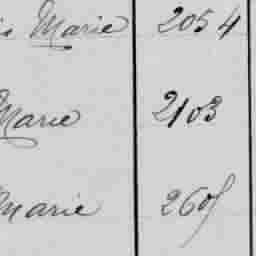 is Marie 2054
Marie 2103
Marie 2605